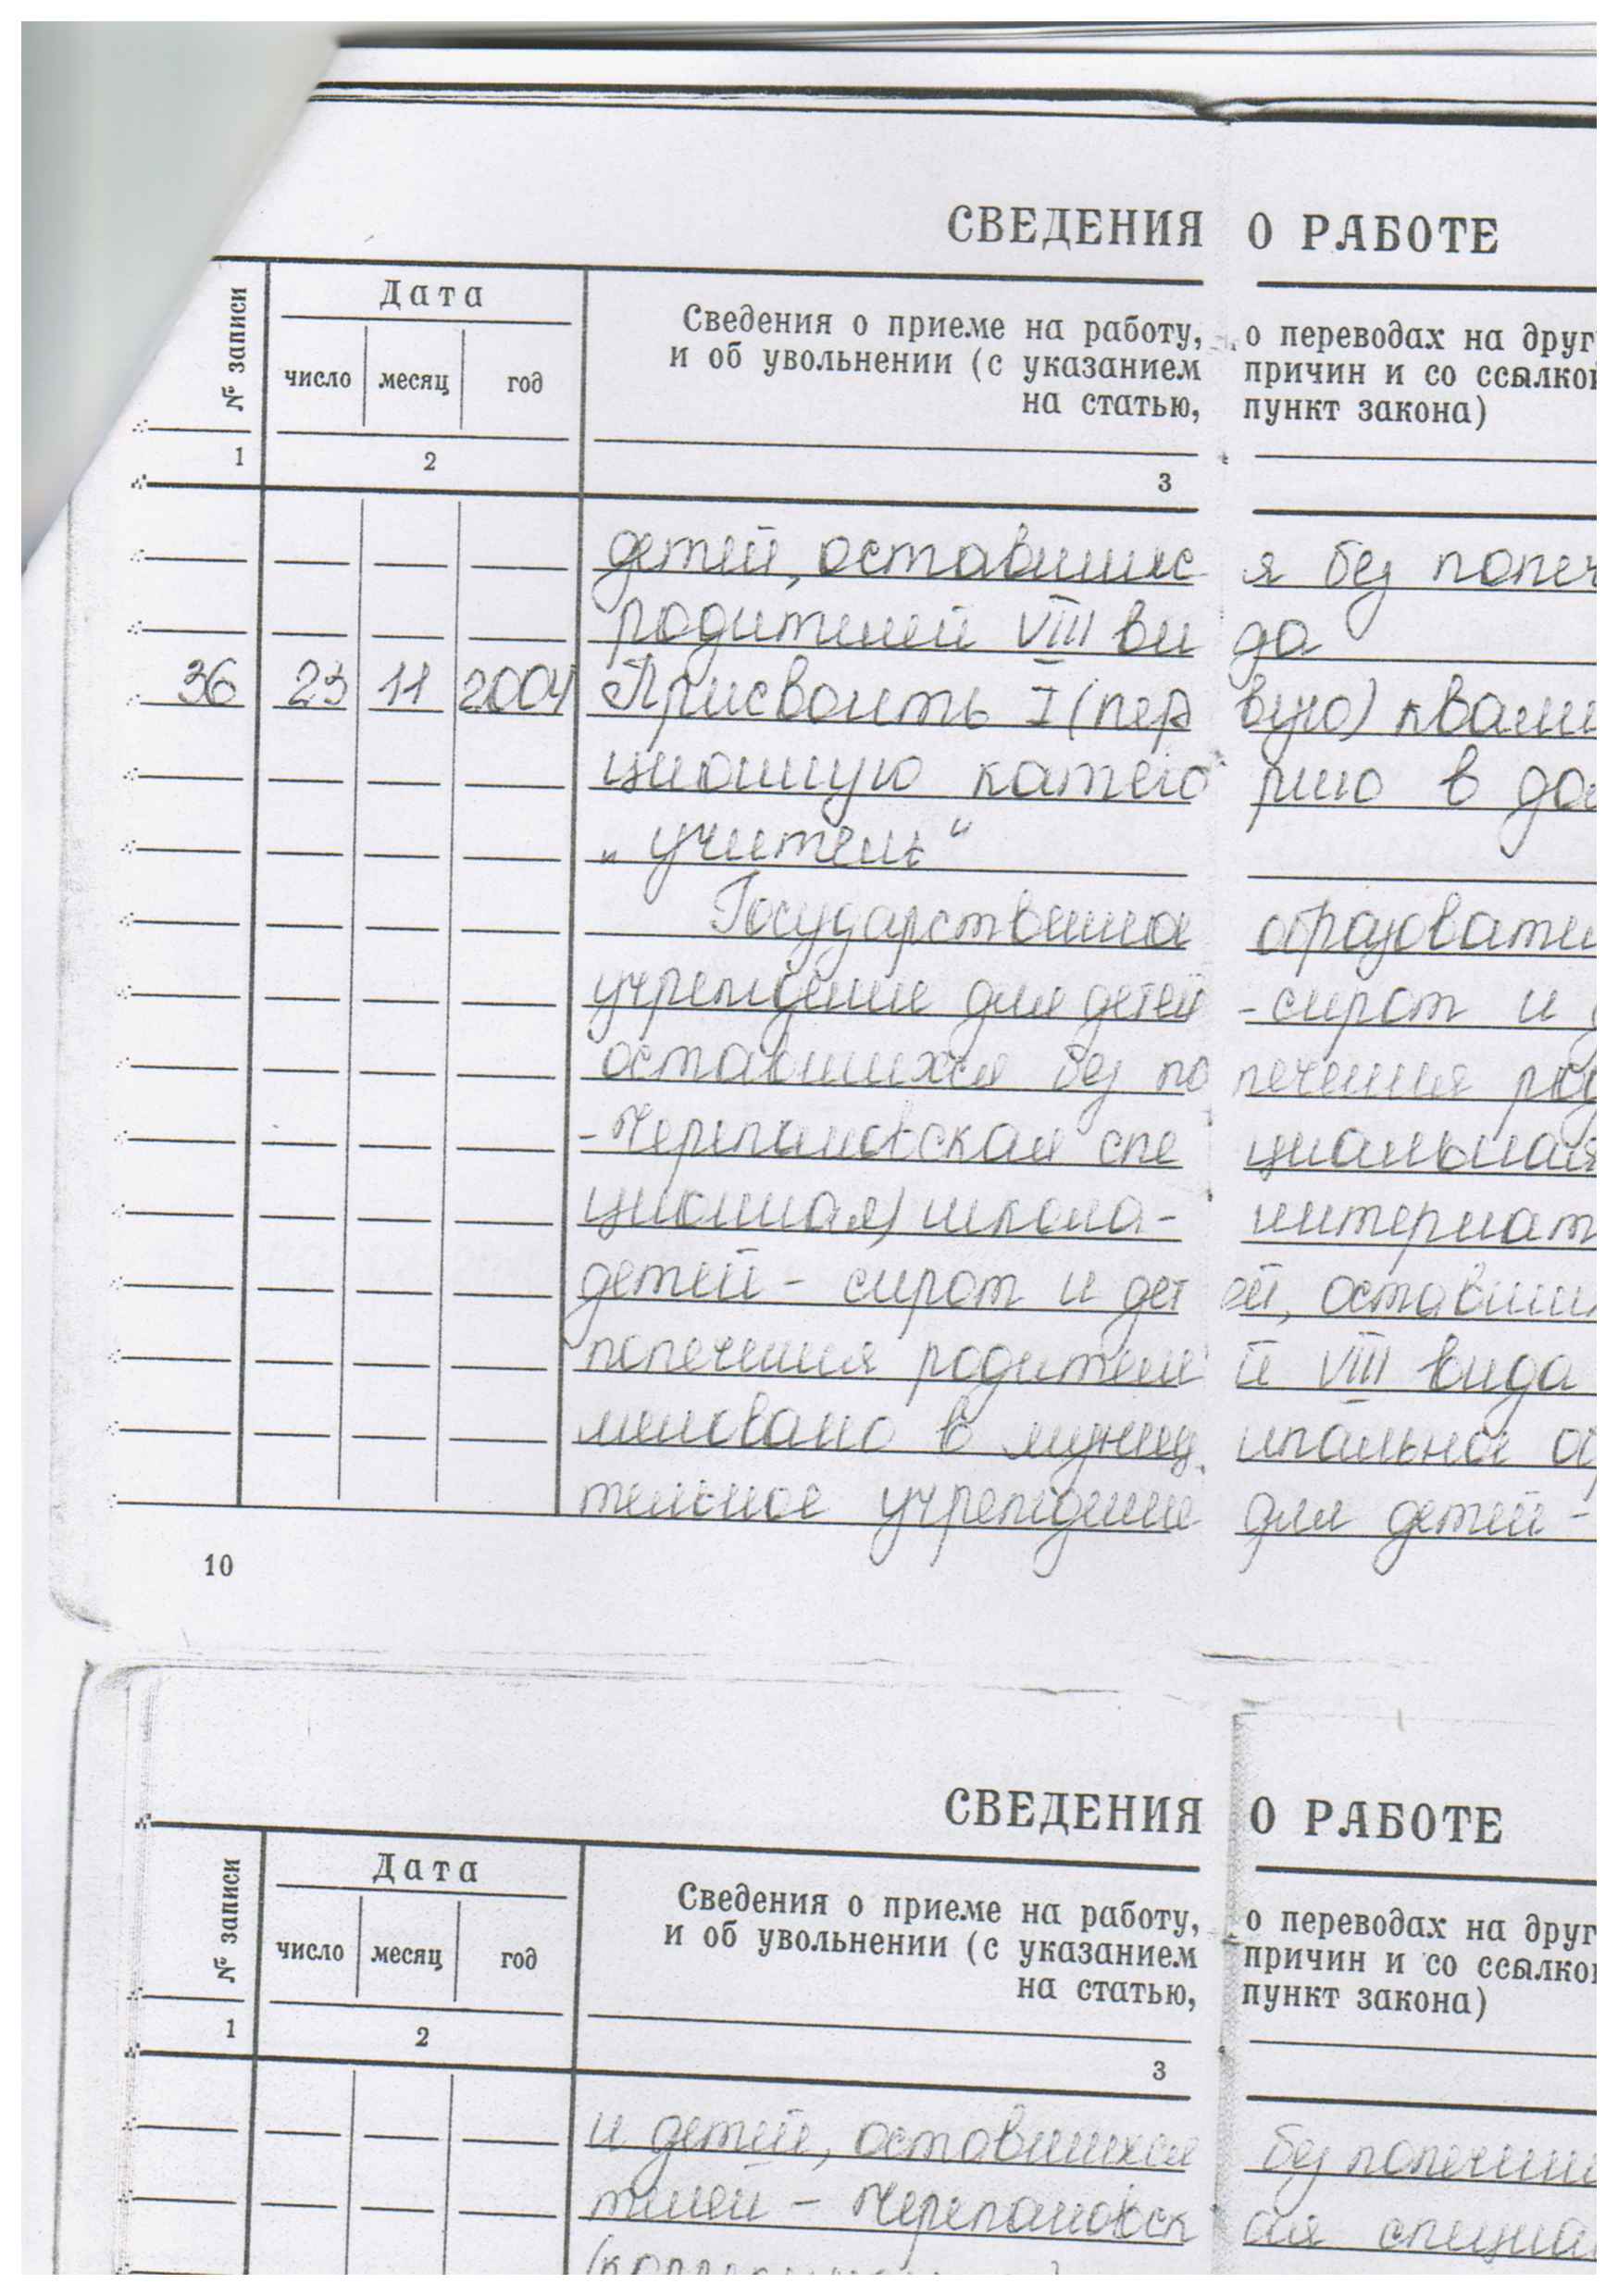 СВЕДЕНИЯ О РАБОТЕ
№ записи
Дата
число месяц год
Сведения о приеме на работу, о переводах на друг
и об увольнении (с указанием причин и со ссылкой
на статью, пункт закона)
1 2 3
детей, оставшихс я без попеч
родителей VIII ви да
36 23 11 2004 Присвоить I (пер вую) квали
ционную катего рию в дол
„учитель“
Государственное образовател
учреждение для детей -сирот и д
оставшихся без по печения род
- Черепановская спе циальная
ционная) школа- интернат
детей - сирот и дет ей, оставших
попечения родителе й VIII вида
меновано в муниц ипальное об
тельное учреждение для детей -
10
СВЕДЕНИЯ О РАБОТЕ
№ записи
Дата
число месяц год
Сведения о приеме на работу, о переводах на друг
и об увольнении (с указанием причин и со ссылкой
на статью, пункт закона)
1 2 3
и детей, оставшихся без попечени
телей - Черепановск ая специа